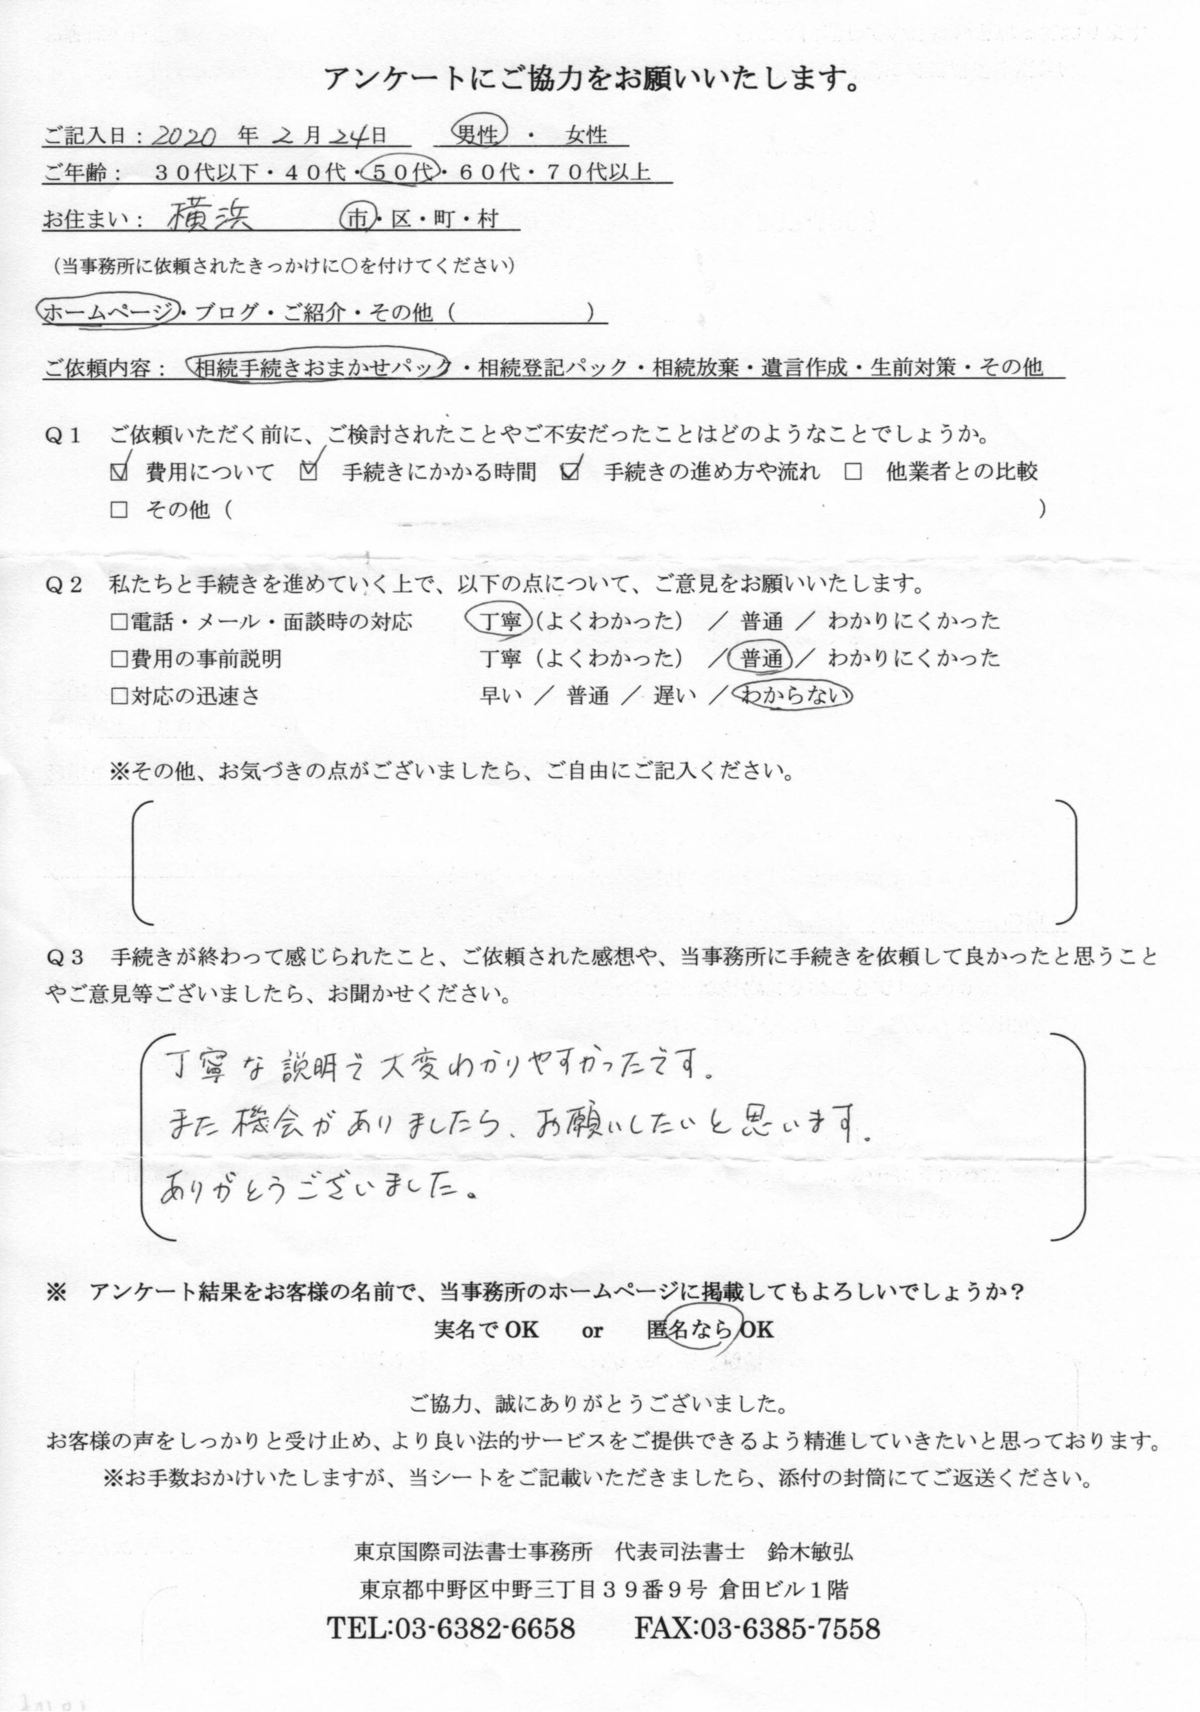 アンケートにご協力をお願いいたします。
ご記入日：2020 年 2 月 24日 男性 ・ 女性
ご年齢： ３０代以下・４０代・５０代・６０代・７０代以上
お住まい： 横浜 市・区・町・村
（当事務所に依頼されたきっかけに○を付けてください）
ホームページ・ブログ・ご紹介・その他（ ）
ご依頼内容： 相続手続きおまかせパック・相続登記パック・相続放棄・遺言作成・生前対策・その他
Ｑ１ ご依頼いただく前に、ご検討されたことやご不安だったことはどのようなことでしょうか。
☑ 費用について ☑ 手続きにかかる時間 ☑ 手続きの進め方や流れ □ 他業者との比較
□ その他（ ）
Ｑ２ 私たちと手続きを進めていく上で、以下の点について、ご意見をお願いいたします。
□電話・メール・面談時の対応 丁寧（よくわかった） ／ 普通 ／ わかりにくかった
□費用の事前説明 丁寧（よくわかった） ／ 普通 ／ わかりにくかった
□対応の迅速さ 早い ／ 普通 ／ 遅い ／ わからない
※その他、お気づきの点がございましたら、ご自由にご記入ください。
Ｑ３ 手続きが終わって感じられたこと、ご依頼された感想や、当事務所に手続きを依頼して良かったと思うこと
やご意見等ございましたら、お聞かせください。
丁寧な説明で大変わかりやすかったです。
また機会がありましたら、お願いしたいと思います。
ありがとうございました。
※ アンケート結果をお客様の名前で、当事務所のホームページに掲載してもよろしいでしょうか？
実名で OK or 匿名なら OK
ご協力、誠にありがとうございました。
お客様の声をしっかりと受け止め、より良い法的サービスをご提供できるよう精進していきたいと思っております。
※お手数おかけいたしますが、当シートをご記載いただきましたら、添付の封筒にてご返送ください。
東京国際司法書士事務所 代表司法書士 鈴木敏弘
東京都中野区中野三丁目３９番９号 倉田ビル１階
TEL:03-6382-6658 FAX:03-6385-7558